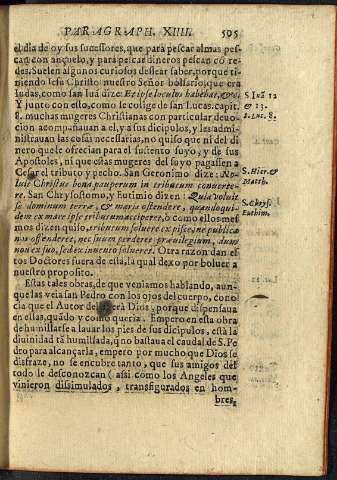 PARAGRAPH. XIIII.
595
el dia de oy sus sucessores, que para pescar almas pes-
can con ançuelo, y para pescar dineros pescan cõ re-
des. Suelen algunos curiosos dessear saber, porque ti-
niendo Iesu Christo nuestro Señor bolsa (o, que era
Iudas, como san Iuã dize: Et ipse loculos habebat, &c.)
Y junto con esto, como se colige de san Lucas. capit.
8. muchas mugeres Christianas con particular deuo-
cion acompañauan a el, y a sus dicipulos, y les admi-
nistrauan las cosas necessarias, no quiso que ni del di
nero que le ofrecian para el sustento suyo, y de sus
Apostoles, ni que estas mugeres del suyo pagassen a
Cesar el tributo y pecho. San Geronimo dize: No-
luit Christus bona pauperum in tributum conuerte-
re. San Chrysostomo, y Eutimio dizen: Quia voluit
se dominum terræ, & maris ostendere, quando qui-
dem ex mare ipse tributum acciperet, o como ellos mes
mos dizen quiso, tributum soluere ex pisce, ne publica
nos offenderet, nec suum perderet præuilegium, dum
non ex suo, sed ex inuento solueret. Otra razon dan es
tos Doctores fuera de esta, la qual dexo por boluer a
nuestro proposito.
Estas tales obras, de que veniamos hablando, aun-
que las veia san Pedro con los ojos del cuerpo, cono
cia que el Autor de era Dios, porque dispensaua
en essas, quãdo y como queria. Empero en esta obra
de humillarse a lauar los pies de sus dicipulos, está la
diuinidad tã humillada, q̃ no bastaua el caudal de S. Pe
dro para alcançarla, empero por mucho que Dios se
disfraze, no se encubre tanto, que sus amigos del
todo le desconozcan (assi como los Angeles que
vinieron dissimulados, y transfigurados en hom-
bres,
S. Iuã 12
& 13.
S. Luc. 8.
S. Hier. &
Matth.
S. Chrys.
Euthim.